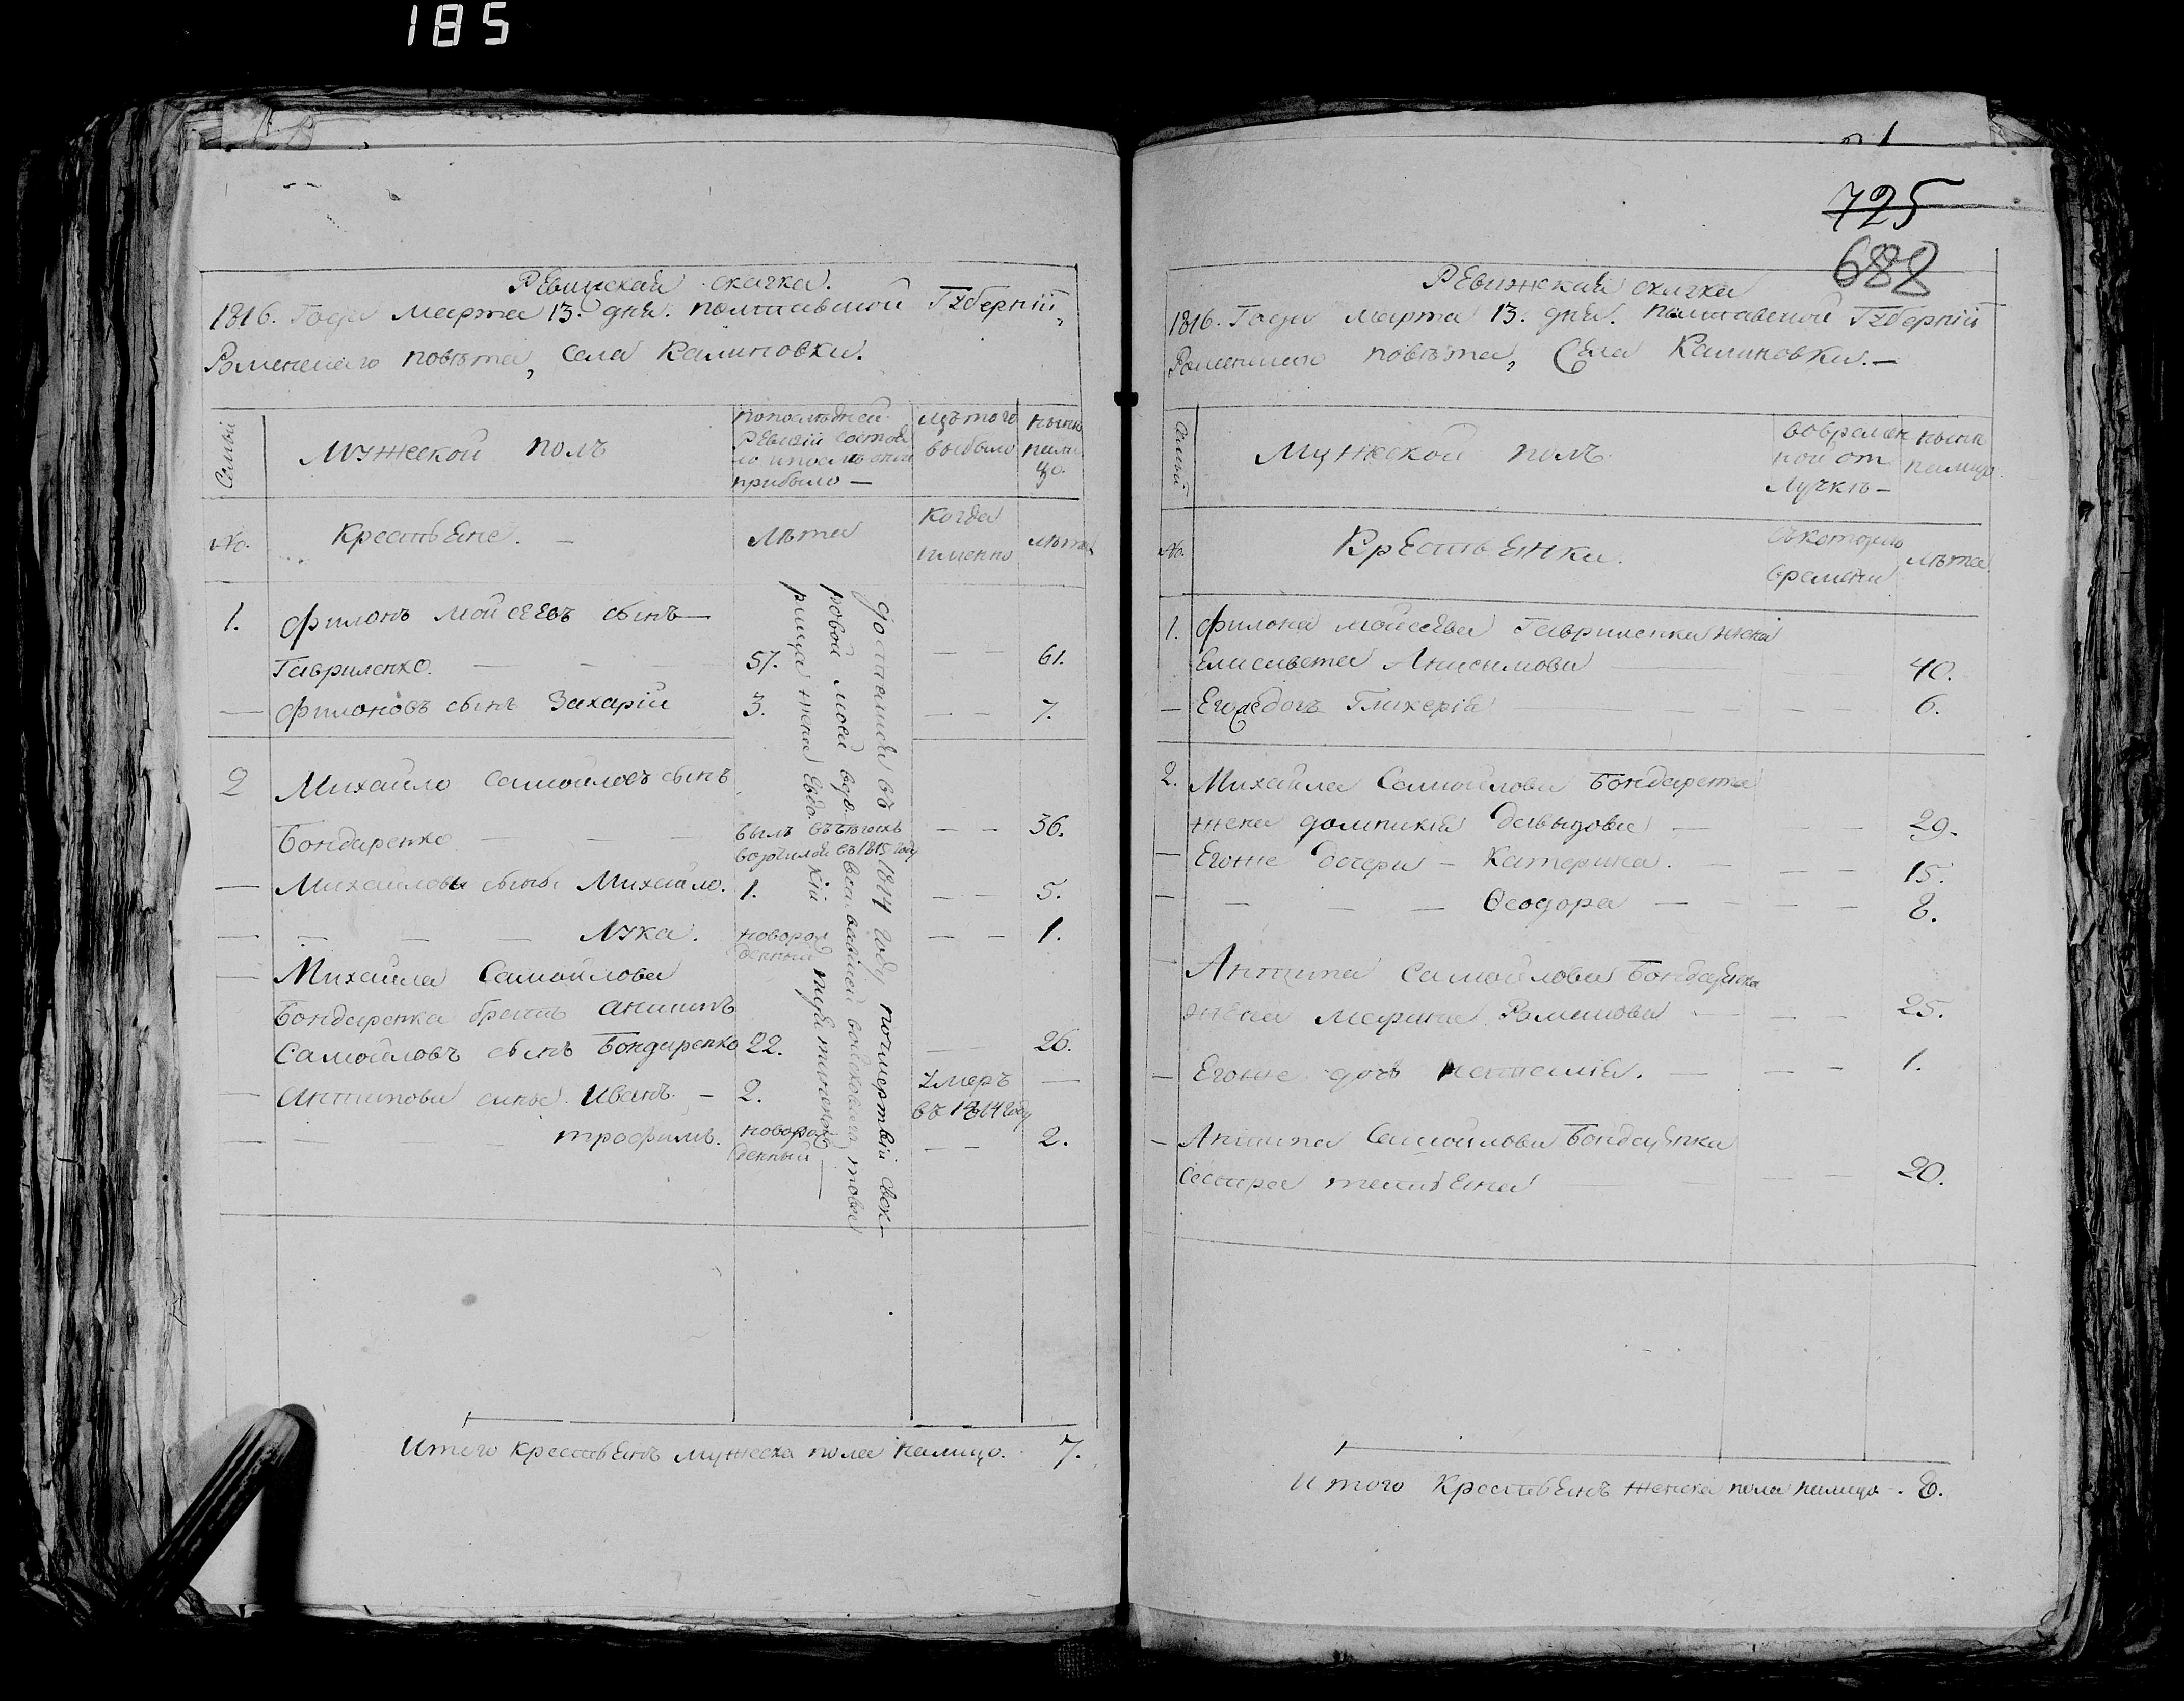 185
Ревижская скачка.
1816. Года Марта 13. дня. полтавской Губерніи,
Роменскаго повѣта, села Калиновки.
Семьи
мужеской полъ
попослѣдней
Ревизіи состоя
ло ипослѣ оной
прибыло —
изъ того
выбыло
нынѣ
нали
цо.
No.
крестьяне. —
Лѣта
Когда
именно
лѣта
1. Филонъ Мойсеевъ сынъ —
Гавриленко. — — — 57. — — 61.
— Филоновъ сынъ Захарій 3. — — 7.
2 Михайло Самойловъ сынъ
Бондаренко — — — былъ въ бѣгахъ — — 36.
въ 1815 году
— Михайловы сынъ Михайло. 1. — — 5.
— — — — Лука. новорож
денный — — 1.
— Михайла Самойлова
Бондаренка братъ Антипъ
Самойловъ сынъ Бондаренко 22. — 26.
— Антипови сины Иванъ. — 2. Умеръ —
въ 1814 году
— — трофимъ. новорож
денный — — 2.
досталися въ 1814 году посмертвіи свек-
ровой моей
рица жена Евдокіи
Итого крестьянъ мужеска пола налицо. 7.
725
688
Ревижская скачка
1816. Года марта 13. дня. Полтавской Губерніи
Роменскаго повѣта, Села Калиновки. —
Семьи
Мужской полъ
вовремян
ной от
лучкѣ —
нынѣ
налицо
No.
Крестьянки.
съкотораго
времени
лѣта
1. Филона мойсеева Гавриленка жена
Елисавета Анисимова — — 40.
— Егоже дочь Гликерія — — — 6.
2. Михайла Самойлова Бондаренка
жена домникія Давыдова — — — 29.
— Егоже дочери — Катерина. — — — 15.
— — — — Ѳеодора — — — — 8.
— Антипа Самойлова Бондаренка
жена марина Романова — — — 25.
— Егоже дочь — — — 1.
— Антипа Самойлова Бондаренка
сестра татьяна — — 20.
Итого Крестьянъ женска пола налицо. 8.